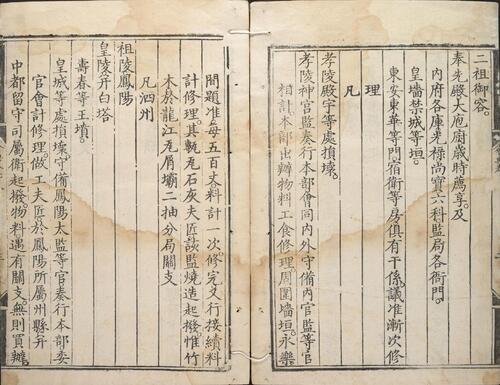 二祖御容。
奉先殿大庖廚歲時薦享。及
內府各庫光祿尚寶六科監局各衙門。
皇墻禁城等垣。
東安東華等門宿衛等房俱有干係。議准漸次修
理
凡
孝陵殿宇等處損壞。
孝陵神宮監奏行本部會同內外守備內官監等官
相計本部出辦物料工食修理周圍墻垣。永樂
間題准每五百丈料計一次修完又行接續料
計修理。其甎瓦石灰夫匠該監燒造起撥。惟竹
木於龍江瓦屑壩二抽分局關支
凡泗州
祖陵鳳陽
皇陵并白塔
壽春等王墳。
皇城等處損壞。守備鳳陽太監等官奏行本部委
官會計修理。做工夫匠於鳳陽所屬州縣并
中都留守司屬衛起撥。物料遇有關支。無則買辦。